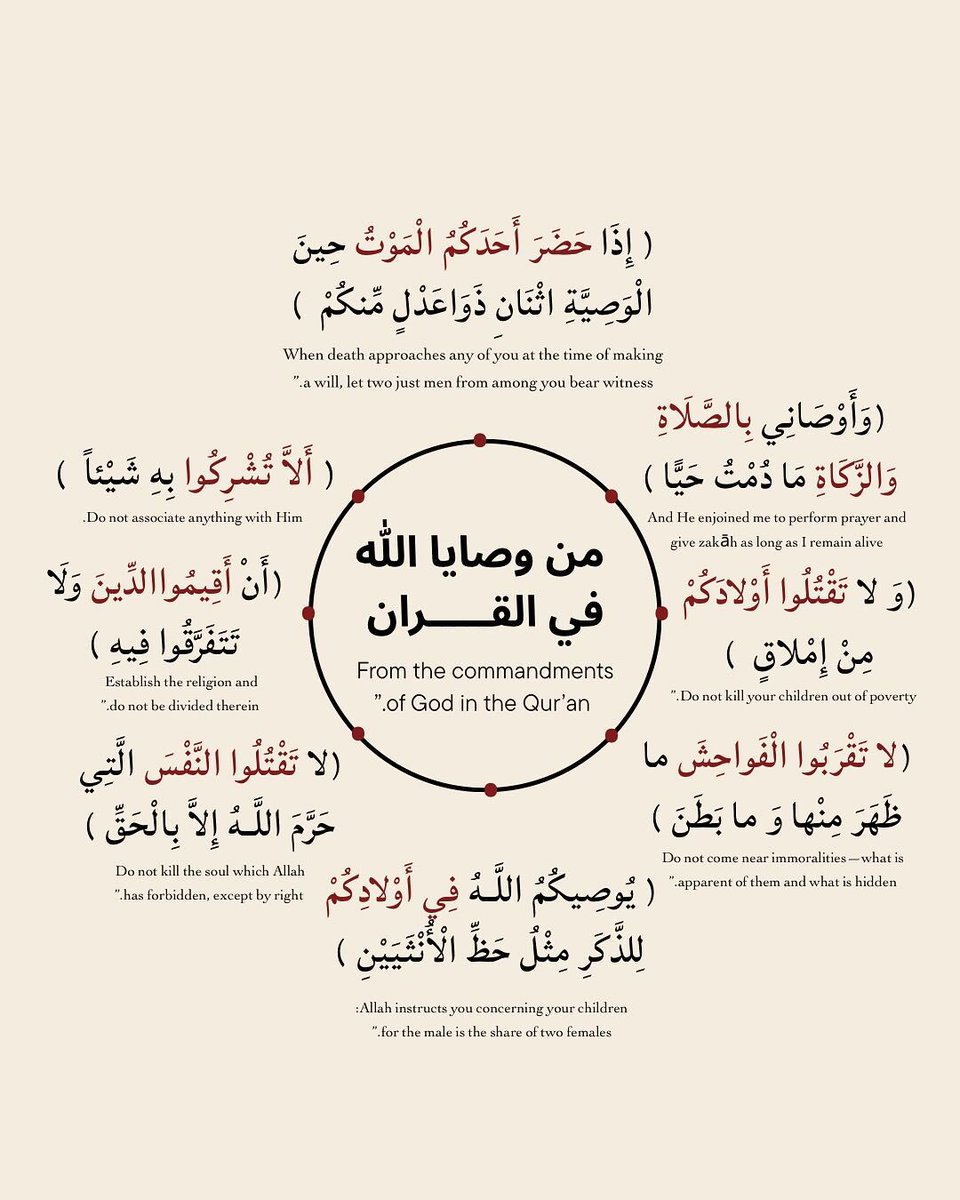 من وصايا الله
في القـــــران
From the commandments
”.of God in the Qur’an
( إِذَا حَضَرَ أَحَدَكُمُ الْمَوْتُ حِينَ
الْوَصِيَّةِ اثْنَانِ ذَوَاعَدْلٍ مِّنكُمْ )
When death approaches any of you at the time of making
”.a will, let two just men from among you bear witness
(وَأَوْصَانِي بِالصَّلَاةِ
وَالزَّكَاةِ مَا دُمْتُ حَيًّا )
And He enjoined me to perform prayer and
give zakāh as long as I remain alive
(وَ لا تَقْتُلُوا أَوْلادَكُمْ
مِنْ إِمْلاقٍ )
”.Do not kill your children out of poverty
(لا تَقْرَبُوا الْفَواحِشَ ما
ظَهَرَ مِنْها وَ ما بَطَنَ )
Do not come near immoralities—what is
”.apparent of them and what is hidden
( يُوصِيكُمُ اللَّـهُ فِي أَوْلادِكُمْ
لِلذَّكَرِ مِثْلُ حَظِّ الْأُنْثَيَيْنِ )
:Allah instructs you concerning your children
”.for the male is the share of two females
(لا تَقْتُلُوا النَّفْسَ الَّتِي
حَرَّمَ اللَّـهُ إِلاَّ بِالْحَقِّ )
Do not kill the soul which Allah
”.has forbidden, except by right
(أَنْ أَقِيمُواالدِّينَ وَلَا
تَتَفَرَّقُوا فِيهِ )
Establish the religion and
”.do not be divided therein
( أَلاَّ تُشْرِكُوا بِهِ شَيْئاً )
.Do not associate anything with Him